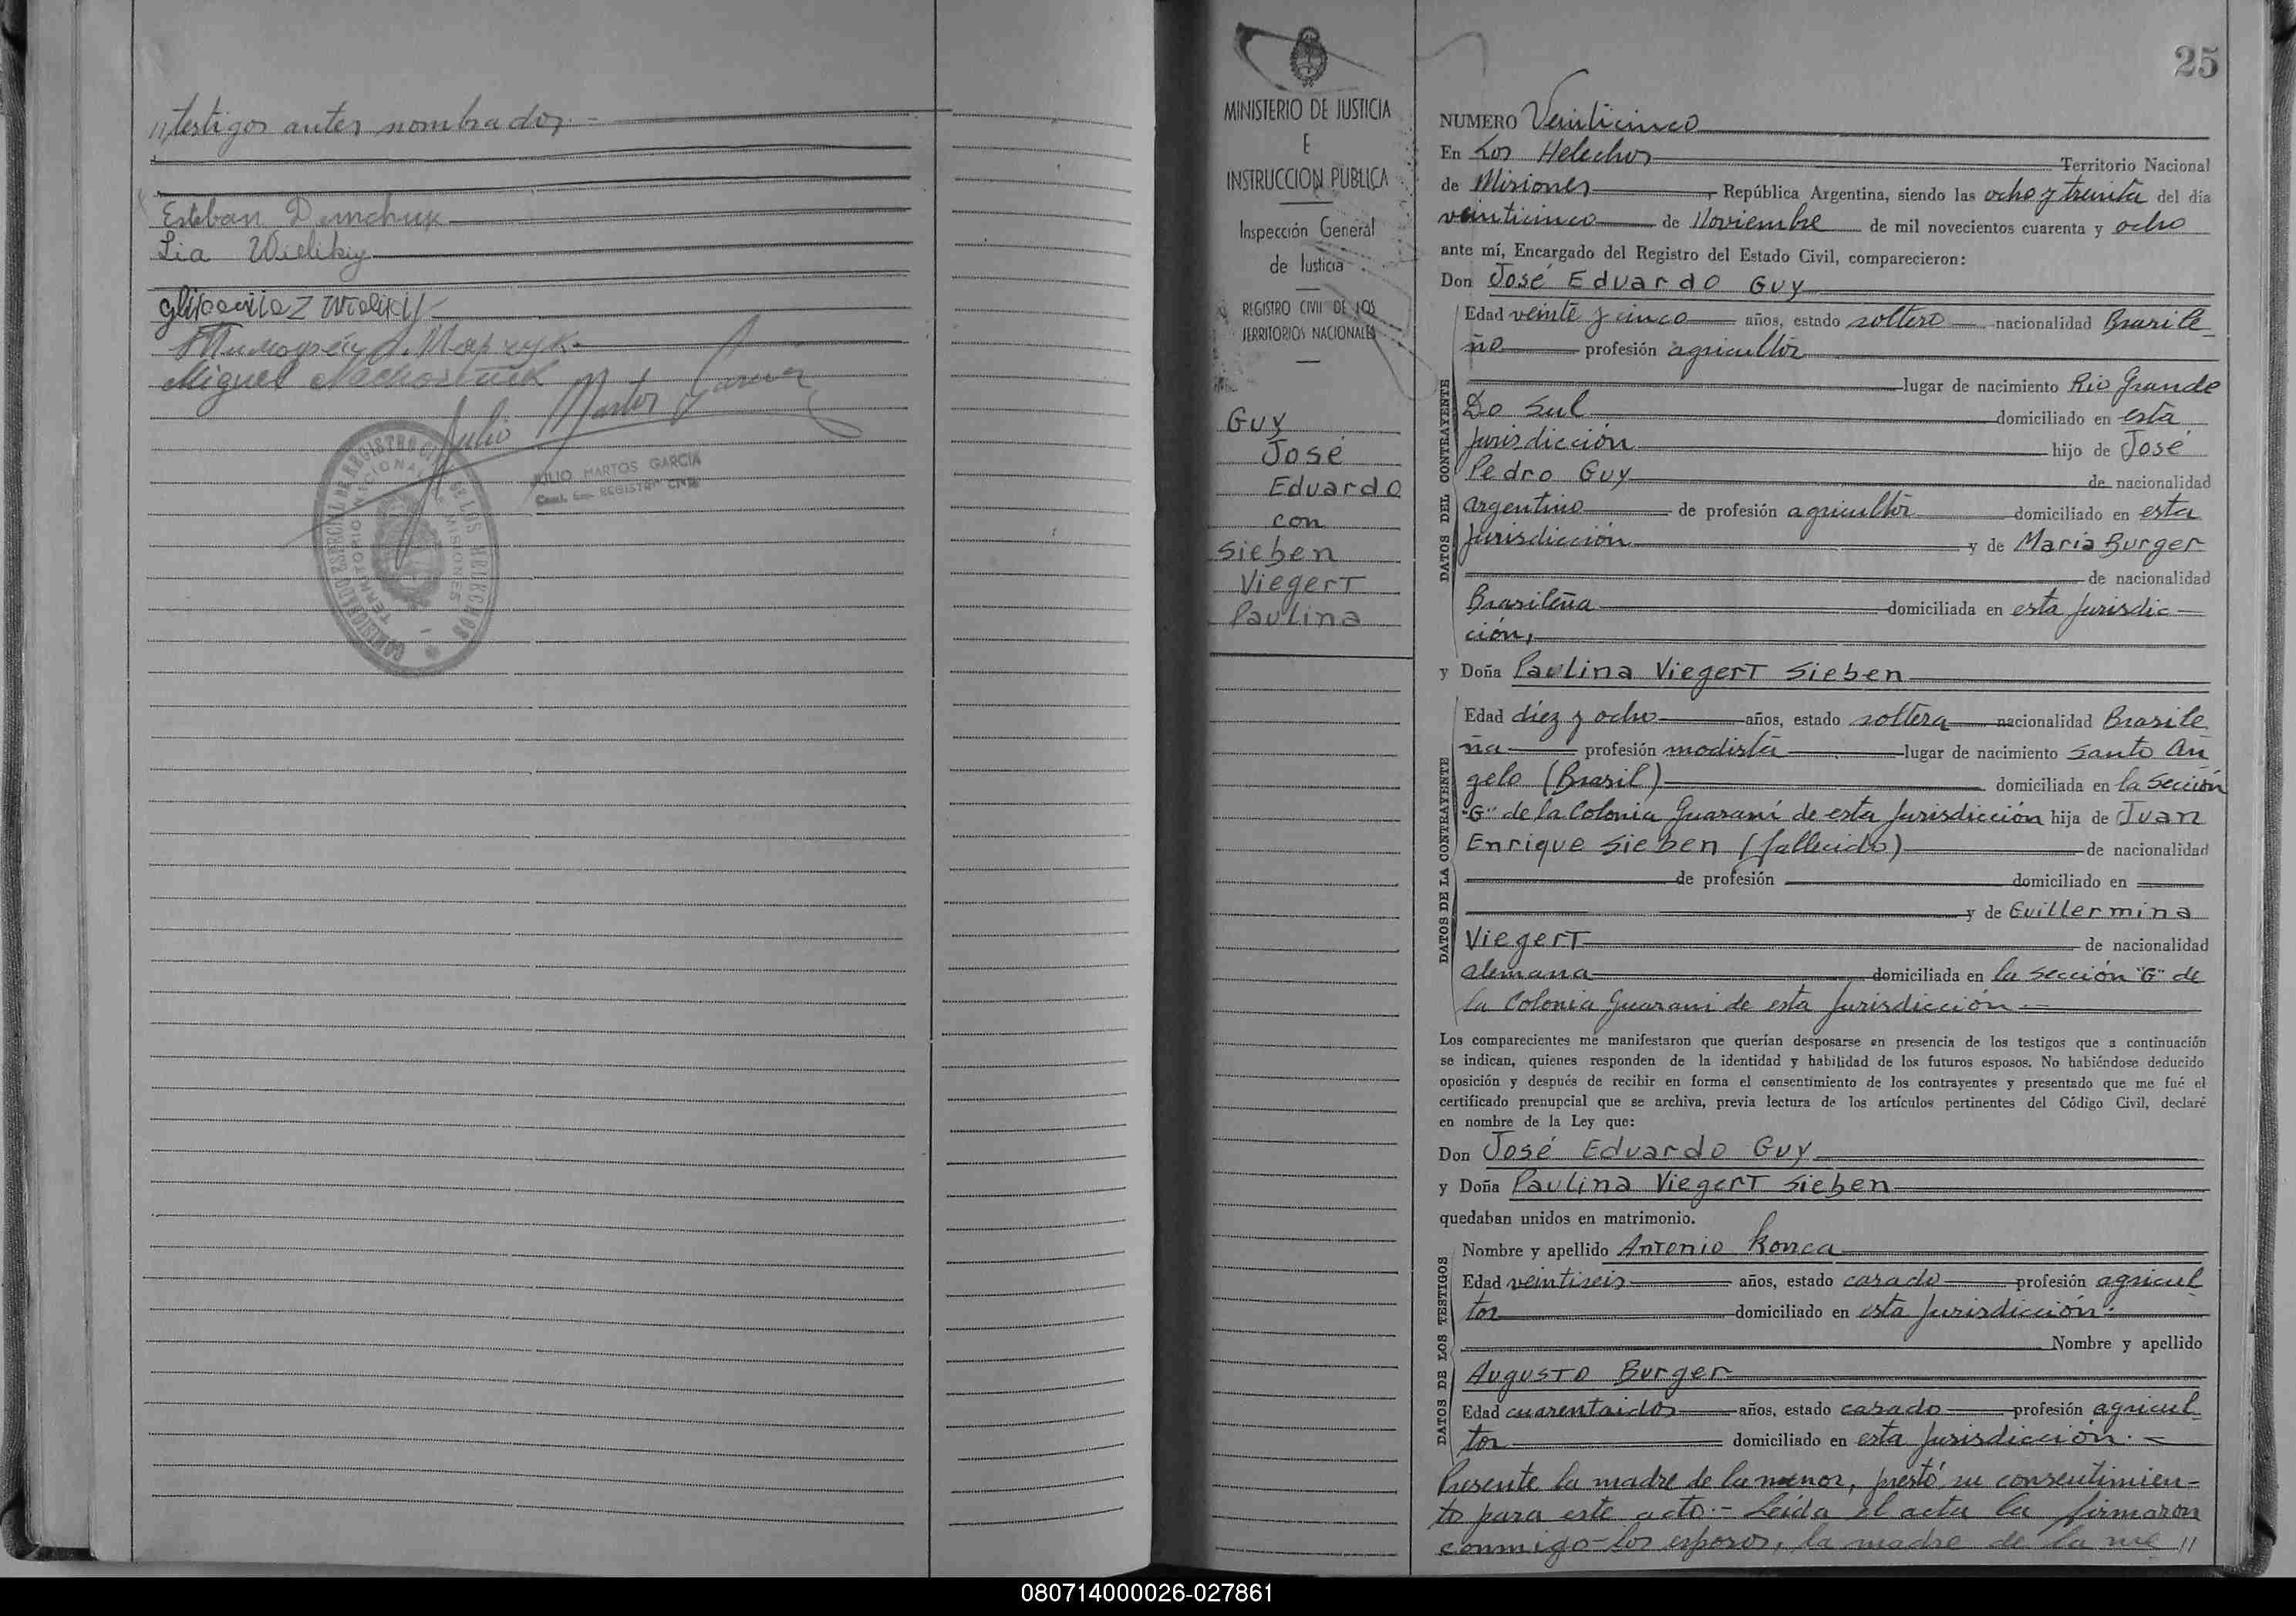 // testigos antes nombrados.-
Esteban Demchuk
Lia Wielikiy
Wielikiy
Miguel
Julio Martos Garcia
JULIO MARTOS GARCIA
REGISTRO CIVIL
TERRITORIO NACIONAL DE MISIONES
25
MINISTERIO DE JUSTICIA
E
INSTRUCCION PUBLICA
Inspección General
de Justicia
REGISTRO CIVIL DE LOS
TERRITORIOS NACIONALES
Guy
José
Eduardo
con
Sieben
Viegert
Paulina
NUMERO Veinticinco
En Los Helechos Territorio Nacional
de Misiones, República Argentina, siendo las ocho y treinta del día
veinticinco de Noviembre de mil novecientos cuarenta y ocho
ante mí, Encargado del Registro del Estado Civil, comparecieron:
Don José Eduardo Guy
DATOS DEL CONTRAYENTE
Edad veinte y cinco años, estado soltero nacionalidad Brasile
ño profesión agricultor
lugar de nacimiento Rio Grande
Do Sul domiciliado en esta
Jurisdicción hijo de José
Pedro Guy de nacionalidad
argentino de profesión agricultor domiciliado en esta
Jurisdicción y de María Burger
de nacionalidad
Brasileña domiciliada en esta Jurisdic-
ción,
y Doña Paulina Viegert Sieben
DATOS DE LA CONTRAYENTE
Edad diez y ocho años, estado soltera nacionalidad Brasile
ña profesión modista lugar de nacimiento Santo An
gelo (Brasil) domiciliada en la Sección
"G" de la Colonia Guaraní de esta Jurisdicción hija de Juan
Enrique Sieben (fallecido) de nacionalidad
de profesión domiciliado en
y de Guillermina
Viegert de nacionalidad
alemana domiciliada en la Sección "G" de
la Colonia Guarani de esta Jurisdicción
Los comparecientes me manifestaron que querían desposarse en presencia de los testigos que a continuación
se indican, quienes responden de la identidad y habilidad de los futuros esposos. No habiéndose deducido
oposición y después de recibir en forma el consentimiento de los contrayentes y presentado que me fué el
certificado prenupcial que se archiva, previa lectura de los artículos pertinentes del Código Civil, declaré
en nombre de la Ley que:
Don José Eduardo Guy
y Doña Paulina Viegert Sieben
quedaban unidos en matrimonio.
DATOS DE LOS TESTIGOS
Nombre y apellido Antonio Konca
Edad veintiseis años, estado casado profesión agricul
tor domiciliado en esta Jurisdicción.
Nombre y apellido
Augusto Burger
Edad cuarentaidos años, estado casado profesión agricul
tor domiciliado en esta Jurisdicción.-
Presente la madre de la menor, prestó su consentimien-
to para este acto.- Leída el acta la firmaron
conmigo los esposos, la madre de la me //
080714000026-027861